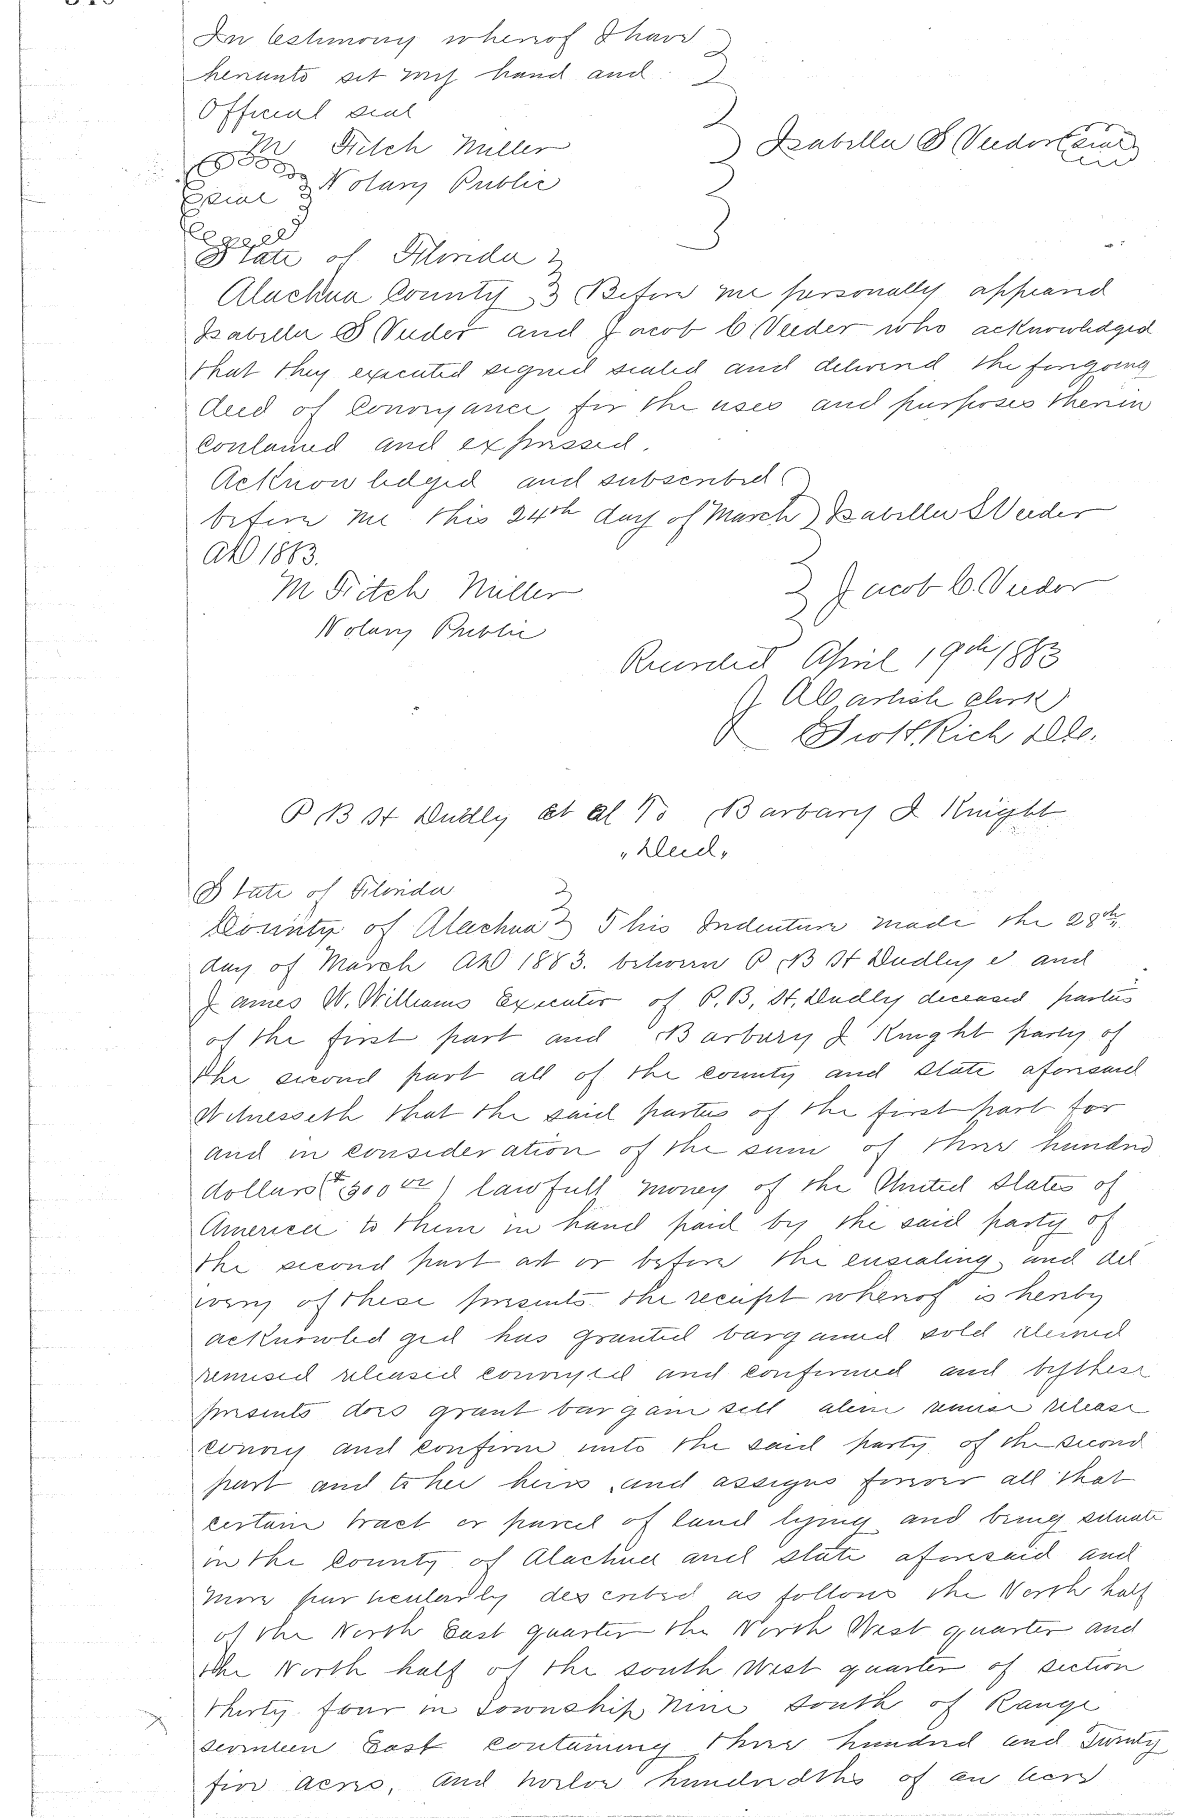 In testimony whereof I have
hereunto set my hand and
Official seal
M Fitch Miller
Isabella S Veeder Seal
Seal Notary Public
State of Florida
Alachua County Before me personally appeard
Isabella S Veeder and Jacob C Veeder who acknowledged
that they executed signed sealed and delivered the foregoing
deed of Conveyance for the uses and purposes therein
contained and expressed.
Acknowledged and subscribed
before me this 24th day of March Isabella S Veeder
AD 1883.
M Fitch Miller
Jacob C. Veeder
Notary Public
Recorded April 19th 1883
J A Carlisle clerk
Rich D.C.
P B H Dudly et al To Barbary J Knight
"Deed"
State of Florida
County of Alachua This Indenture made the 28th
day of March AD 1883. between P B H Dudley and
James W. Williams Executor of P. B. H. Dudly deceased parties
of the first part and Barbary J Knight party of
the second part all of the county and state aforesaid
Witnesseth that the said parties of the first part for
and in consideration of the sum of three hundred
dollars ($300 00) lawfull money of the United States of
America to them in hand paid by the said party of
the second part at or before the ensealing and del
ivery of these presents the receipt whereof is hereby
acknowledged has granted bargained sold aliened
remised released conveyed and confirmed and by these
presents does grant bargain sell alien remise release
convey and confirm unto the said party of the second
part and to her heirs and assigns forever all that
certain tract or parcel of land lying and being situate
in the County of Alachua and state aforesaid and
more particularly described as follows the North half
of the North East quarter the North West quarter and
the North half of the south West quarter of section
thirty four in Township Nine south of Range
seventeen East containing three hundred and Twenty
five acres, and hundredths of an acre